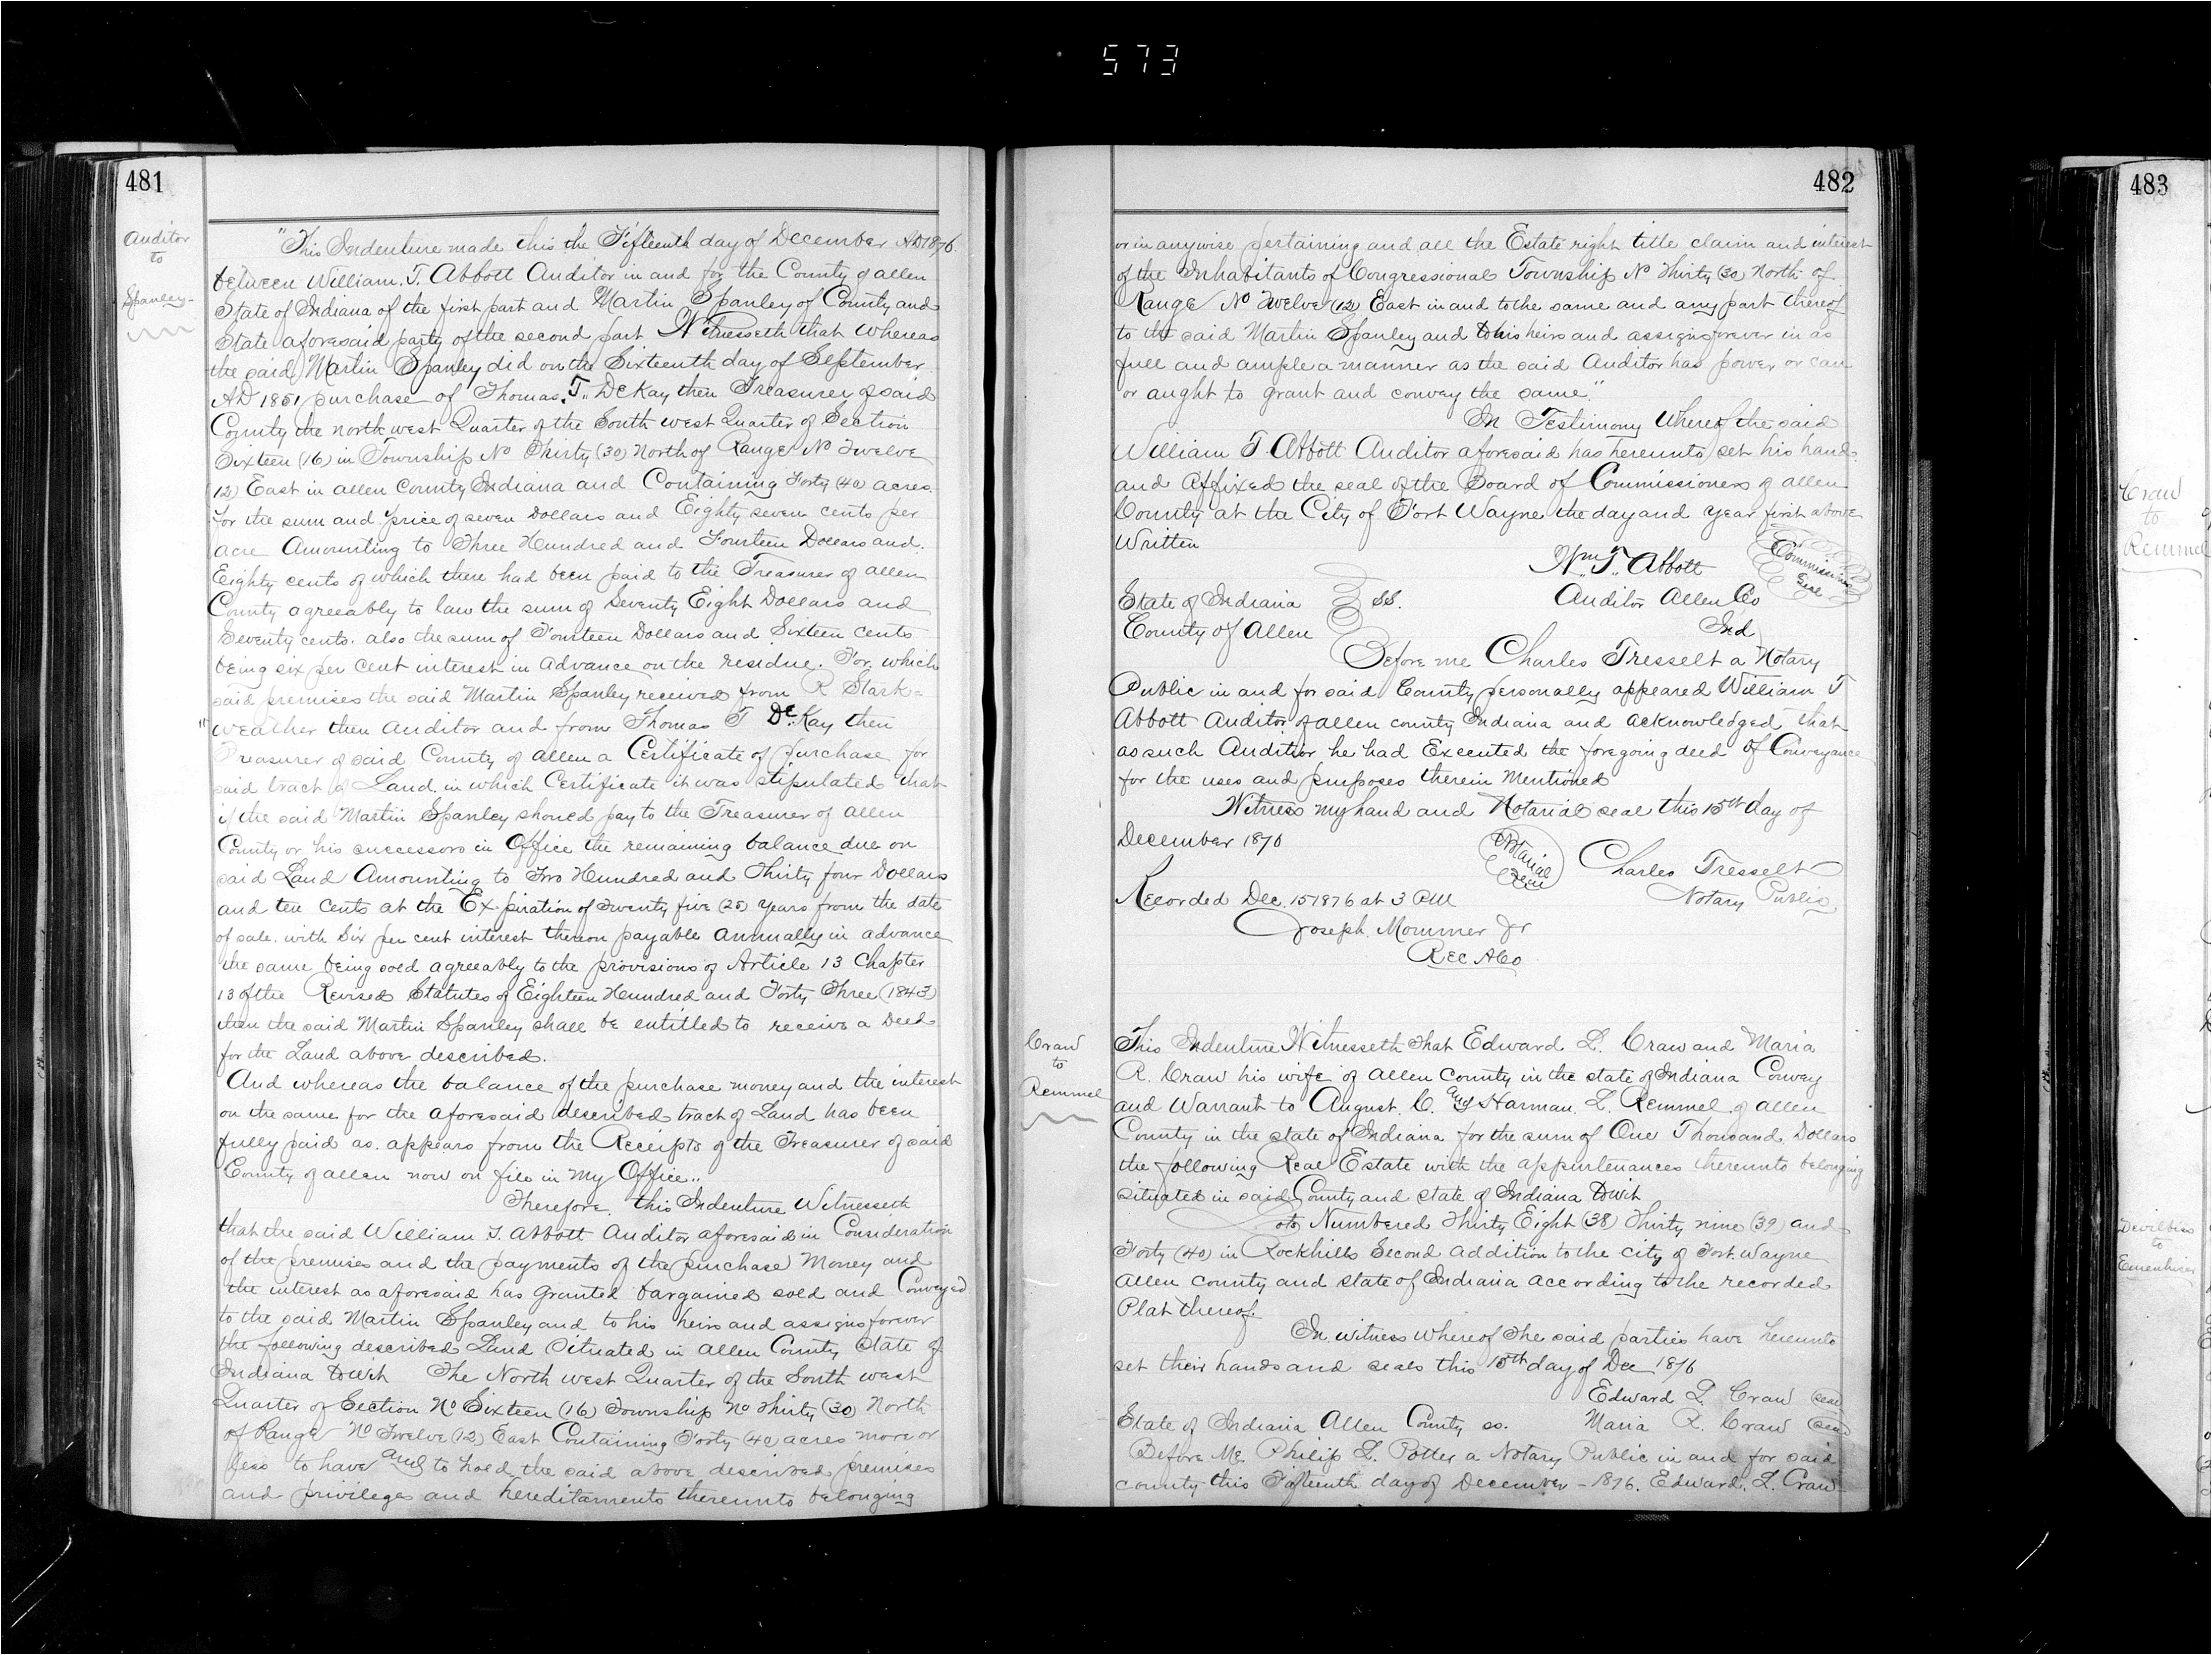 573
481
Auditor
to
Spanley
"This Indenture made this the Fifteenth day of December AD 1876
between William. T. Abbott Auditor in and for the County of allen
State of Indiana of the first part and Martin Spanley of County and
State aforesaid party of the second part Witnesseth that whereas
the said Martin Spanley did on the Sixteenth day of September
AD 1851 purchase of Thomas. T. DeKay then Treasurer of said
County the north west Quarter of the South west Quarter of Section
Sixteen (16) in Township No Thirty (30) North of Range No Twelve
(12) East in allen County Indiana and Containing Forty (40) acres.
for the sum and price of seven Dollars and Eighty seven cents per
acre Amounting to Three Hundred and Fourteen Dollars and.
Eighty cents of which there had been paid to the Treasurer of allen
County agreeably to law the sum of Seventy Eight Dollars and
Seventy cents. also the sum of Fourteen Dollars and Sixteen cents
being six per cent interest in advance on the residue. For which
said premises the said Martin Spanley received from R Stark=
"weather then Auditor and from Thomas T DeKay then
Treasurer of said County of allen a Certificate of purchase for
said tract of Land. in which Certificate it was stipulated that
if the said Martin Spanley should pay to the Treasurer of allen
County or his successors in Office the remaining balance due on
said Land Amounting to Two Hundred and Thirty four Dollars
and ten cents at the Expiration of Twenty five (25) years from the date
of sale. with six per cent interest thereon payable annually in advance
the same being sold agreeably to the provisions of Article 13 Chapter
13 of the Revised Statutes of Eighteen Hundred and Forty Three (1843)
then the said Martin Spanley shall be entitled to receive a Deed
for the Land above described.
And whereas the balance of the purchase money and the interest
on the same for the aforesaid described tract of Land has been
fully paid as. appears from the Receipts of the Treasurer of said
County of allen now on file in my Office..
Therefore. this Indenture Witnesseth
that the said William T. Abbott Auditor aforesaid in Consideration
of the premises and the payments of the purchase Money and
the interest as aforesaid has granted bargained sold and Conveyed
to the said Martin Spanley and to his heirs and assigns forever
the following described Land Situated in allen County State of
Indiana towit The North west Quarter of the South west
Quarter of Section No Sixteen (16) Township No Thirty (30) North
of Range No Twelve (12) East Containing Forty (40 acres more or
less to have and to hold the said above described premises
and privileges and hereditaments thereunto belonging
482
or in anywise pertaining and all the Estate right title claim and interest
of the Inhabitants of Congressional Township No Thirty (30) North of
Range No Twelve (12) East in and to the same and any part thereof
to the said Martin Spanley and to his heirs and assigns forever in as
full and ample a manner as the said Auditor has power or can
or aught to grant and convey the same."
In Testimony Whereof the said
William T. Abbott Auditor aforesaid has hereunto set his hand
and Affixed the seal of the Board of Commissioners of allen
County at the City of Fort Wayne the day and year first above
Written
Wm. T. Abbott
Auditor Allen Co
Ind
Commissioners
Seal
State of Indiana
SS.
County of Allen
Before me Charles Tresselt a Notary
Public in and for said County personally appeared William T
Abbott Auditor of allen county Indiana and acknowledged that
as such Auditor he had Executed the foregoing deed of Conveyance
for the uses and purposes therein Mentioned
Witness my hand and Notarial seal this 15th day of
December 1876
Notarial
Seal
Charles Tresselt
Notary Public
Recorded Dec. 15 1876 at 3 PM
Joseph. Mommer Jr
Rec ACo
Craw
to
Remmel
This Indenture Witnesseth That Edward L. Craw and Maria
R. Craw his wife of allen County in the state of Indiana Convey
and Warrant to August. C. and Harman. L. Remmel of allen
County in the state of Indiana for the sum of One Thousand Dollars
the following Real Estate with the appurtenances thereunto belonging
situated in said County and state of Indiana towit
Lots Numbered Thirty Eight (38) Thirty nine (39) and
Forty (40) in Rockhills Second addition to the city of Fort Wayne
allen county and state of Indiana according to the recorded
Plat thereof.
In witness whereof The said parties have hereunto
set their hands and seals this 15th day of Dec 1876
Edward L. Craw seal
State of Indiana Allen County ss. Maria R. Craw seal
Before Me. Philip L. Potter a Notary Public in and for said
county this Fifteenth day of December - 1876. Edward. L. Craw
483
Craw
to
Remmel
Devilbiss
to